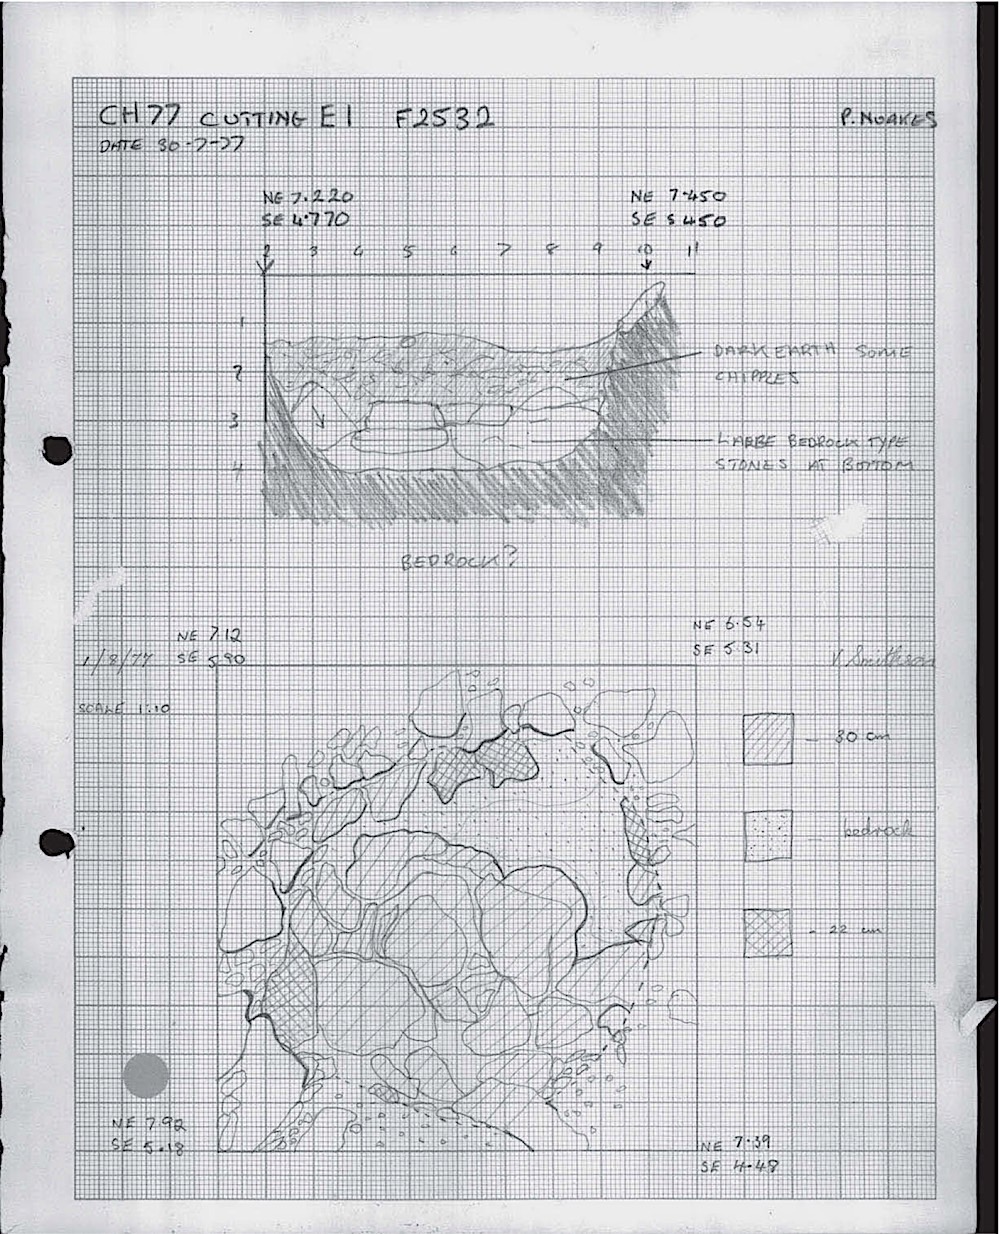 CH77 CUTTING E1 F2532
P. NOAKES
DATE 30-7-77
NE 7.220
SE 4.770
NE 7.450
SE 5 450
2 3 4 5 6 7 8 9 10 11
1
2
3
4
DARK EARTH SOME
CHIPPLES
LARGE BEDROCK TYPE
STONES AT BOTTOM
BEDROCK?
NE 7.12
SE 5.90
NE 6.54
SE 5.31
1/8/77
V. Smithson
SCALE 1:10
- 30 cm
- bedrock
- 22 cm
NE 7.92
SE 5.18
NE 7.39
SE 4.48